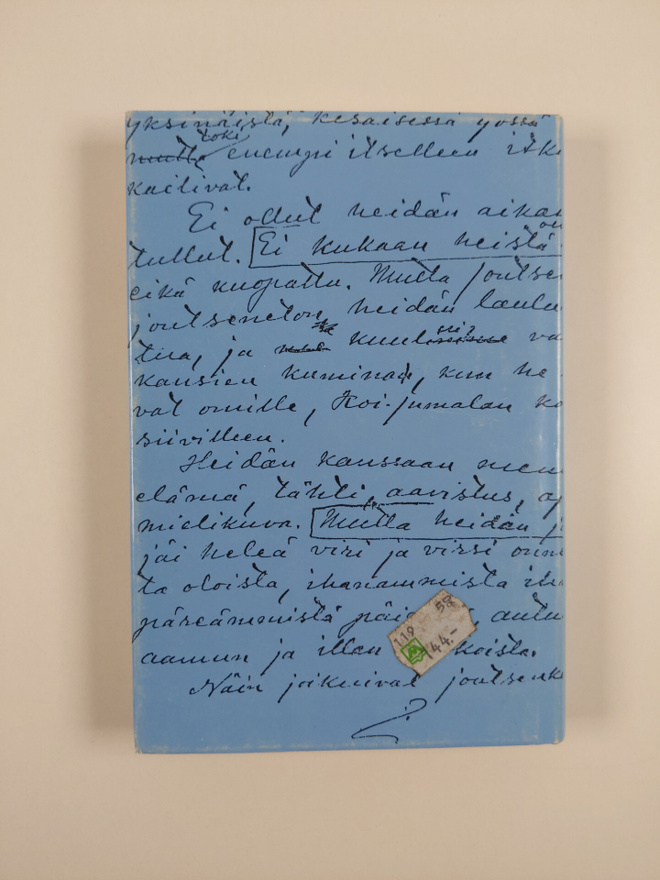 yksinäistä, kesäisessä yössä
toki
mutta enempi itselleen itke
kailivat.
Ei ollut heidän aikan
tullut. Ei kukaan heistä
eikä kuopattu. Mutta joutse
joutseneton, heidän laulu
tua, ja kuul va
kansien kuminan, kun he
vat omille, Koi-jumalan ko
siivilleen.
Heidän kanssaan men
elämä, tähti, aavistus,
mielikuva. Mutta heidän j
jäi heleä viri ja virsi onne
ta oloista, ihanammista ih
päreämmistä päi , autu
aamun ja illan koista.
Näin joikuivat joutsenk
119 58
44.-